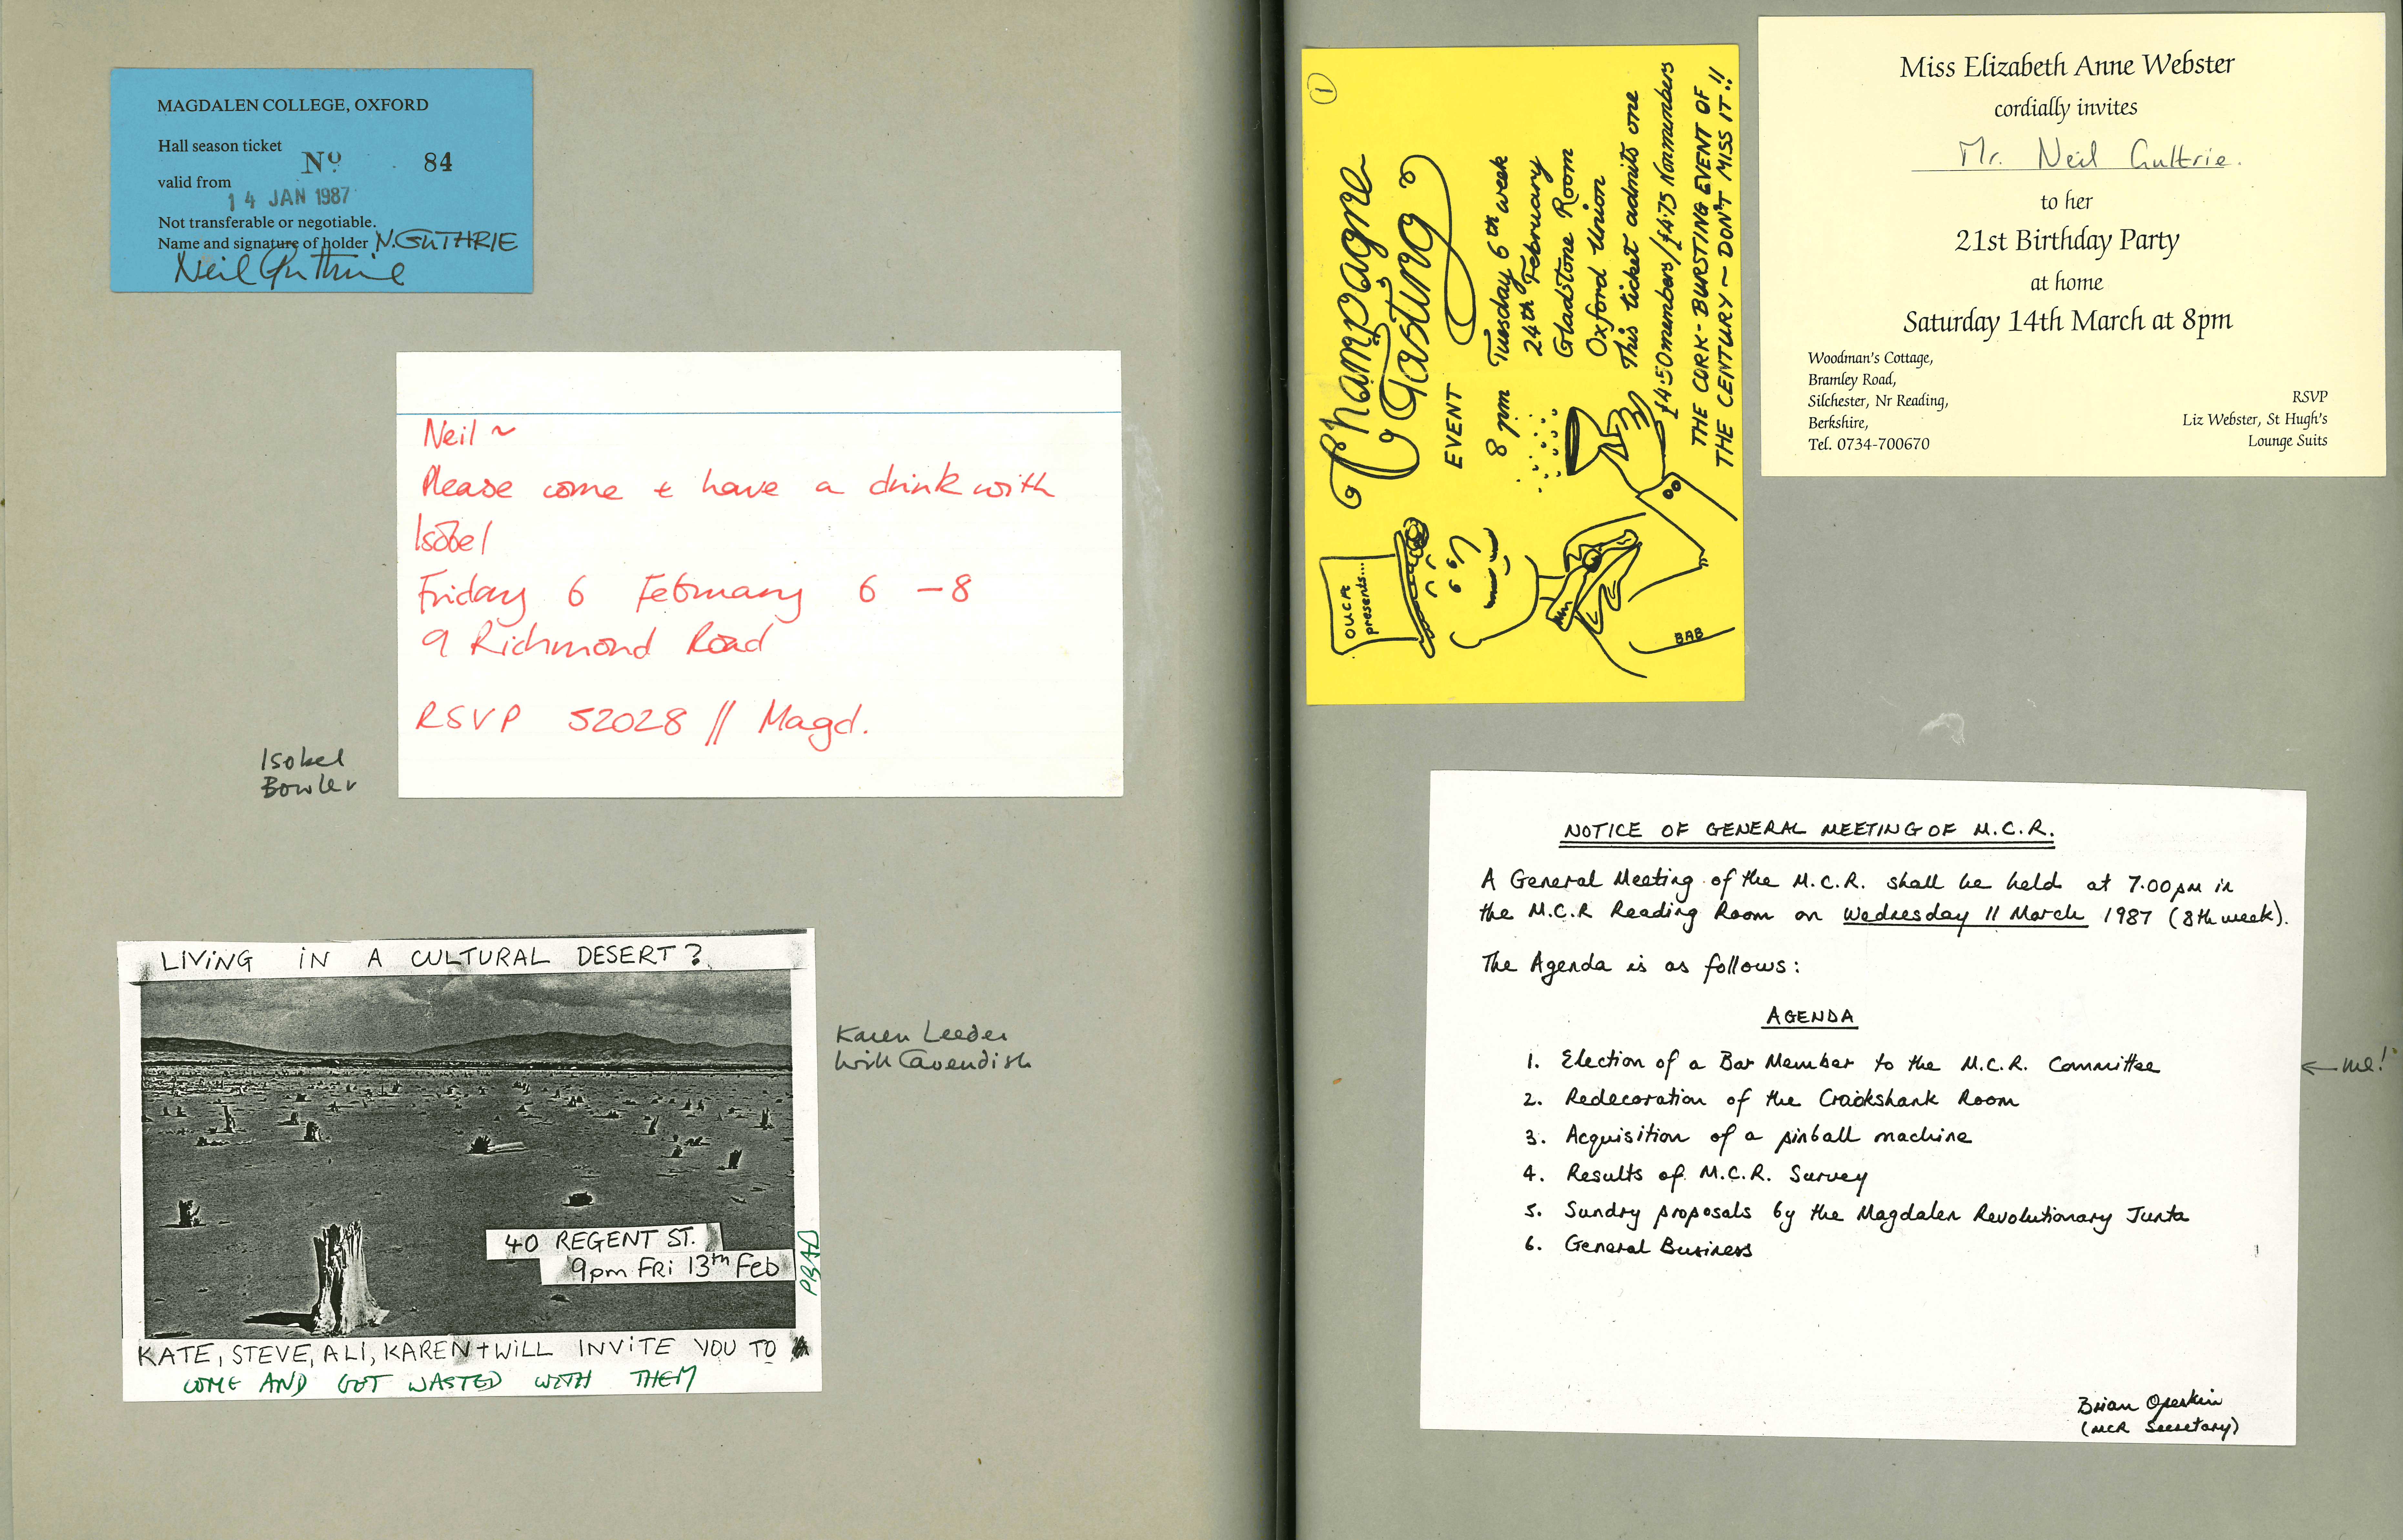 MAGDALEN COLLEGE, OXFORD
Hall season ticket
No 84
valid from
14 JAN 1987
Not transferable or negotiable.
Name and signature of holder N. GUTHRIE
Neil Guthrie
Neil ~
Please come + have a drink with
Isobel
Friday 6 February 6 - 8
9 Richmond Road
RSVP 52028 // Magd.
Isobel
Bowler
LIVING IN A CULTURAL DESERT?
40 REGENT ST.
9pm FRI 13th Feb
PBAD
KATE, STEVE, ALI, KAREN + WILL INVITE YOU TO
COME AND GET WASTED WITH THEM
Karen Leeder
Will Cavendish
1
OUCA presents...
Champagne
Tasting
EVENT
8 pm Tuesday 6th week
24th February
Gladstone Room
Oxford Union
This ticket admits one
£4.50 members / £4.75 Nonmembers
THE CORK-BURSTING EVENT OF
THE CENTURY ~ DON'T MISS IT!!
BAB
Miss Elizabeth Anne Webster
cordially invites
Mr. Neil Guthrie.
to her
21st Birthday Party
at home
Saturday 14th March at 8pm
Woodman's Cottage,
Bramley Road,
Silchester, Nr Reading,
Berkshire,
Tel. 0734-700670
RSVP
Liz Webster, St Hugh's
Lounge Suits
NOTICE OF GENERAL MEETING OF M.C.R.
A General Meeting of the M.C.R. shall be held at 7.00pm in
the M.C.R Reading Room on Wednesday 11 March 1987 (8th week).
The Agenda is as follows:
AGENDA
1. Election of a Bar Member to the M.C.R. Committee
2. Redecoration of the Crookshank Room
3. Acquisition of a pinball machine
4. Results of M.C.R. Survey
5. Sundry proposals by the Magdalen Revolutionary Junta
6. General Business
Brian Opeskin
(MCR Secretary)
← me!